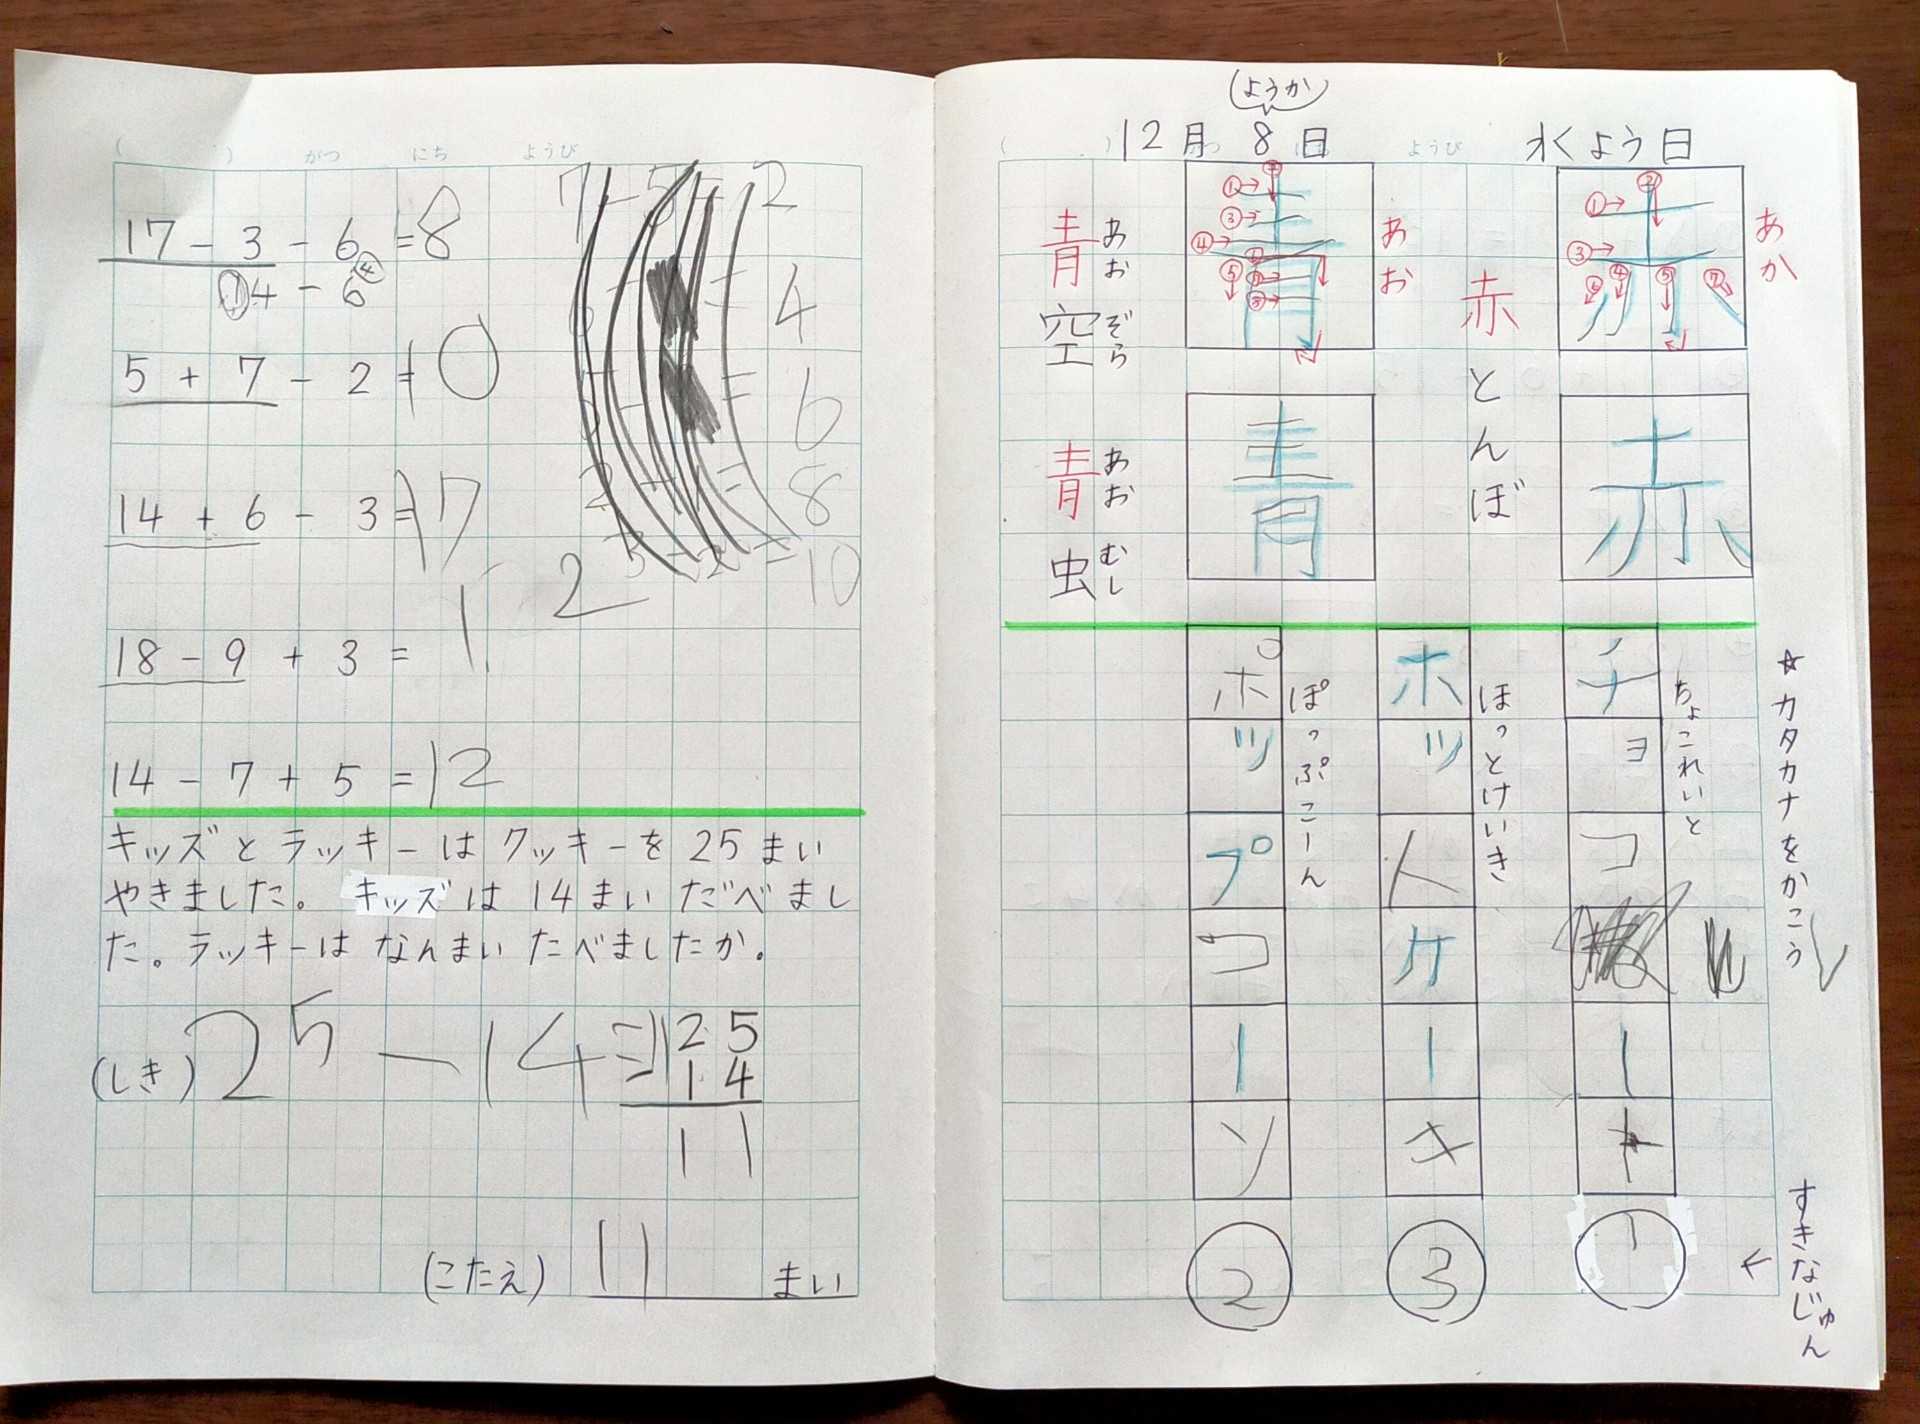 12月8日 水よう日
ようか
あか
赤
赤
赤とんぼ
あお
青
青
青空
あおぞら
青虫
あおむし
☆カタカナをかこう
ちょこれいと
チョコ
ート
ほっとけいき
ホットケーキ
ぽっぷこーん
ポップコーン
すきなじゅん
←
1
3
2
( )がつ にち ようび
17-3-6=8
14-6
4
5+7-2=10
14+6-3=17
18-9+3=12
14-7+5=12
キッズとラッキーはクッキーを25まい
やきました。キッズは14まいたべまし
た。ラッキーはなんまいたべましたか。
(しき)25-14=11
25
14
11
(こたえ)11まい